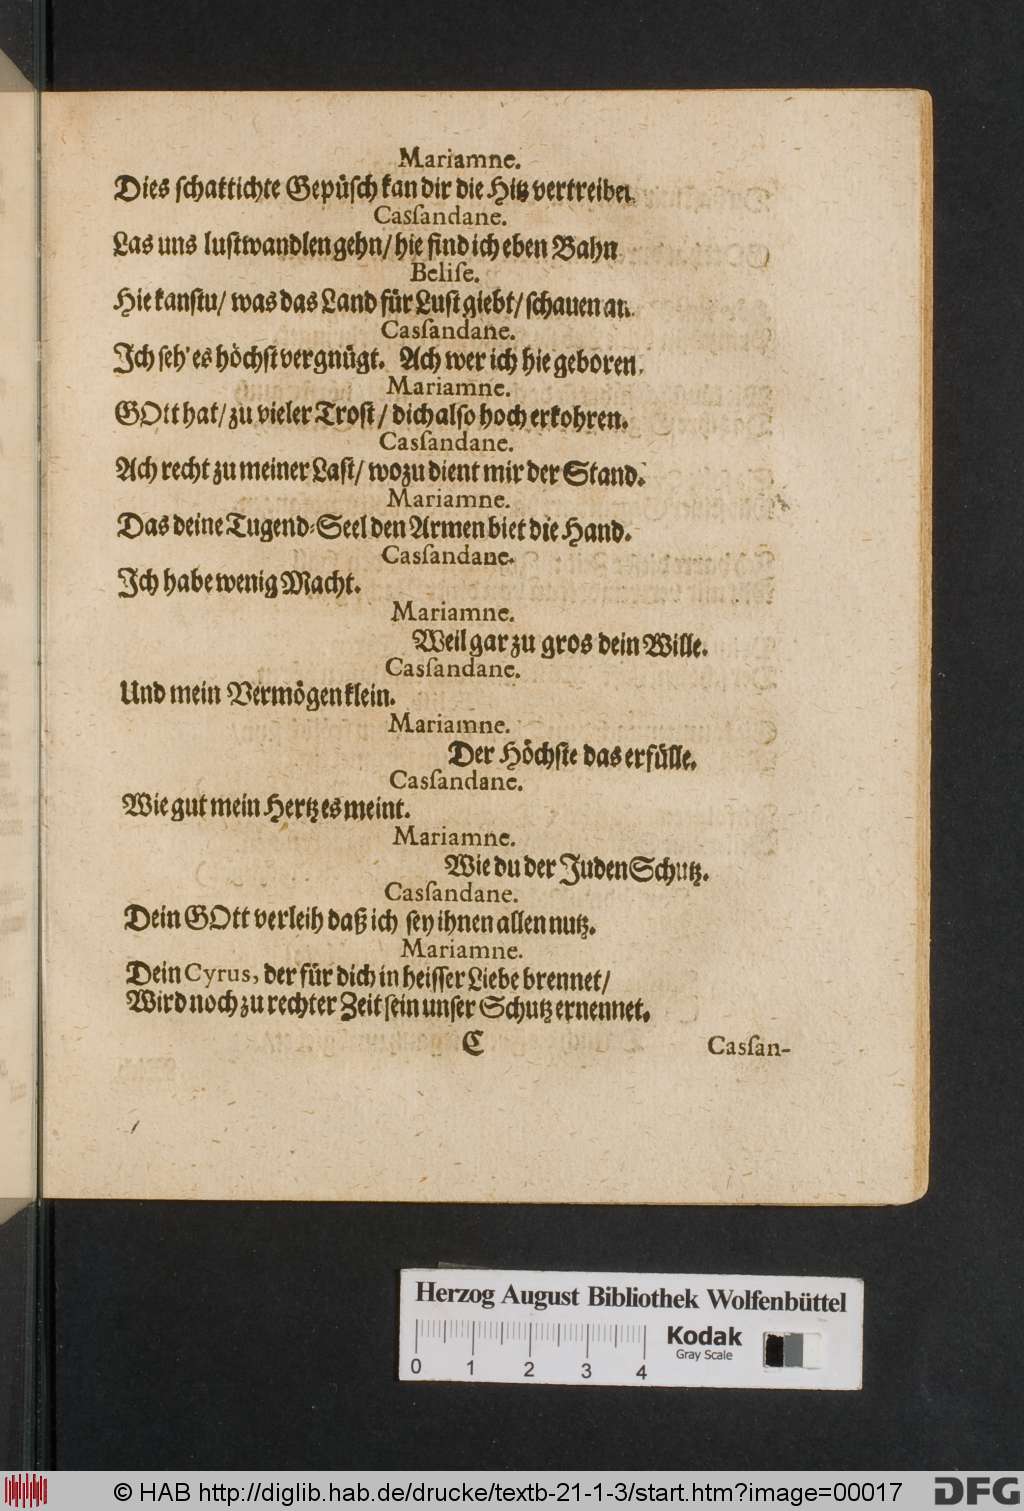 Mariamne.
Dies schattichte Gepüsch kan dir die Hitz vertreiben
Casſandane.
Las uns lustwandlen gehn/ hie find ich eben Bahn
Beliſe.
Hie kanstu/ was das Land für Lust giebt/ schauen an.
Casſandane.
Ich seh' es höchst vergnügt. Ach wer ich hie geboren.
Mariamne.
GOtt hat/ zu vieler Trost/ dich also hoch erkohren.
Casſandane.
Ach recht zu meiner Last/ wozu dient mir der Stand.
Mariamne.
Das deine Tugend-Seel den Armen biet die Hand.
Casſandane.
Ich habe wenig Macht.
Mariamne.
Weil gar zu gros dein Wille.
Casſandane.
Und mein Vermögen klein.
Mariamne.
Der Höchste das erfülle.
Casſandane.
Wie gut mein Hertz es meint.
Mariamne.
Wie du der Juden Schutz.
Casſandane.
Dein GOtt verleih daß ich sey ihnen allen nutz.
Mariamne.
Dein Cyrus, der für dich in heisser Liebe brennet/
Wird noch zu rechter Zeit sein unser Schutz ernennet.
C Casſan-
Herzog August Bibliothek Wolfenbüttel
Kodak
Gray Scale
0 1 2 3 4
© HAB http://diglib.hab.de/drucke/textb-21-1-3/start.htm?image=00017
DFG